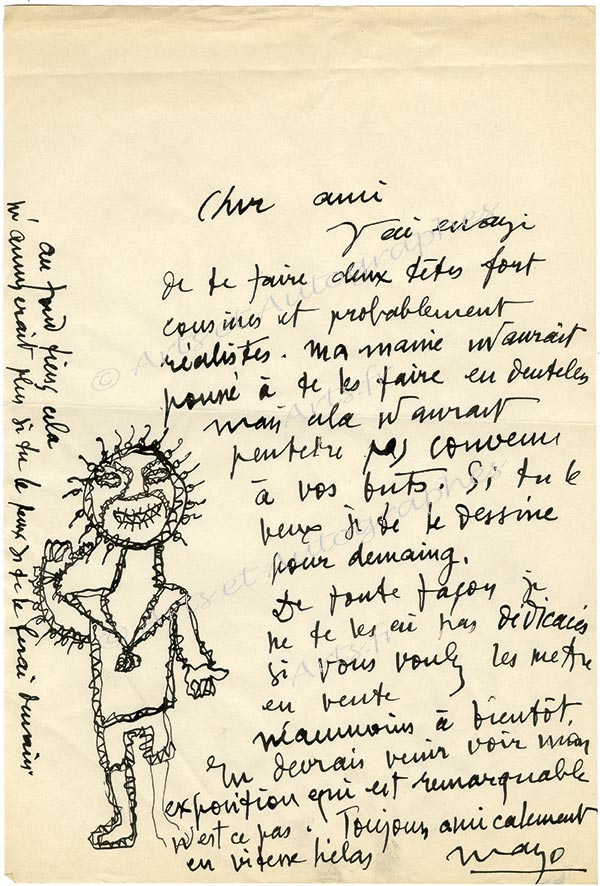 Cher ami
J'ai essayé
de te faire deux têtes fort
cousines et probablement
réalistes. Ma manie m'aurait
poussé à te les faire en denteles
mais cela n'aurait
peutetre pas convenu
à vos buts. Si tu le
veux je te le dessine
pour demaing.
De toute façon je
ne te les ai pas dédicacés
si vous voulez les mettre
en vente
néammoins à bientôt,
Tu devrais venir voir mon
exposition qui est remarquable
n'est ce pas. Toujours amicalement
en vitesse hélas
Mayo
au fond tiens cela
m'amuserait plus si tu le peux je te le ferai demain
© Arts et Autographes
Arts.fr
Arts et Autographes
Arts.fr